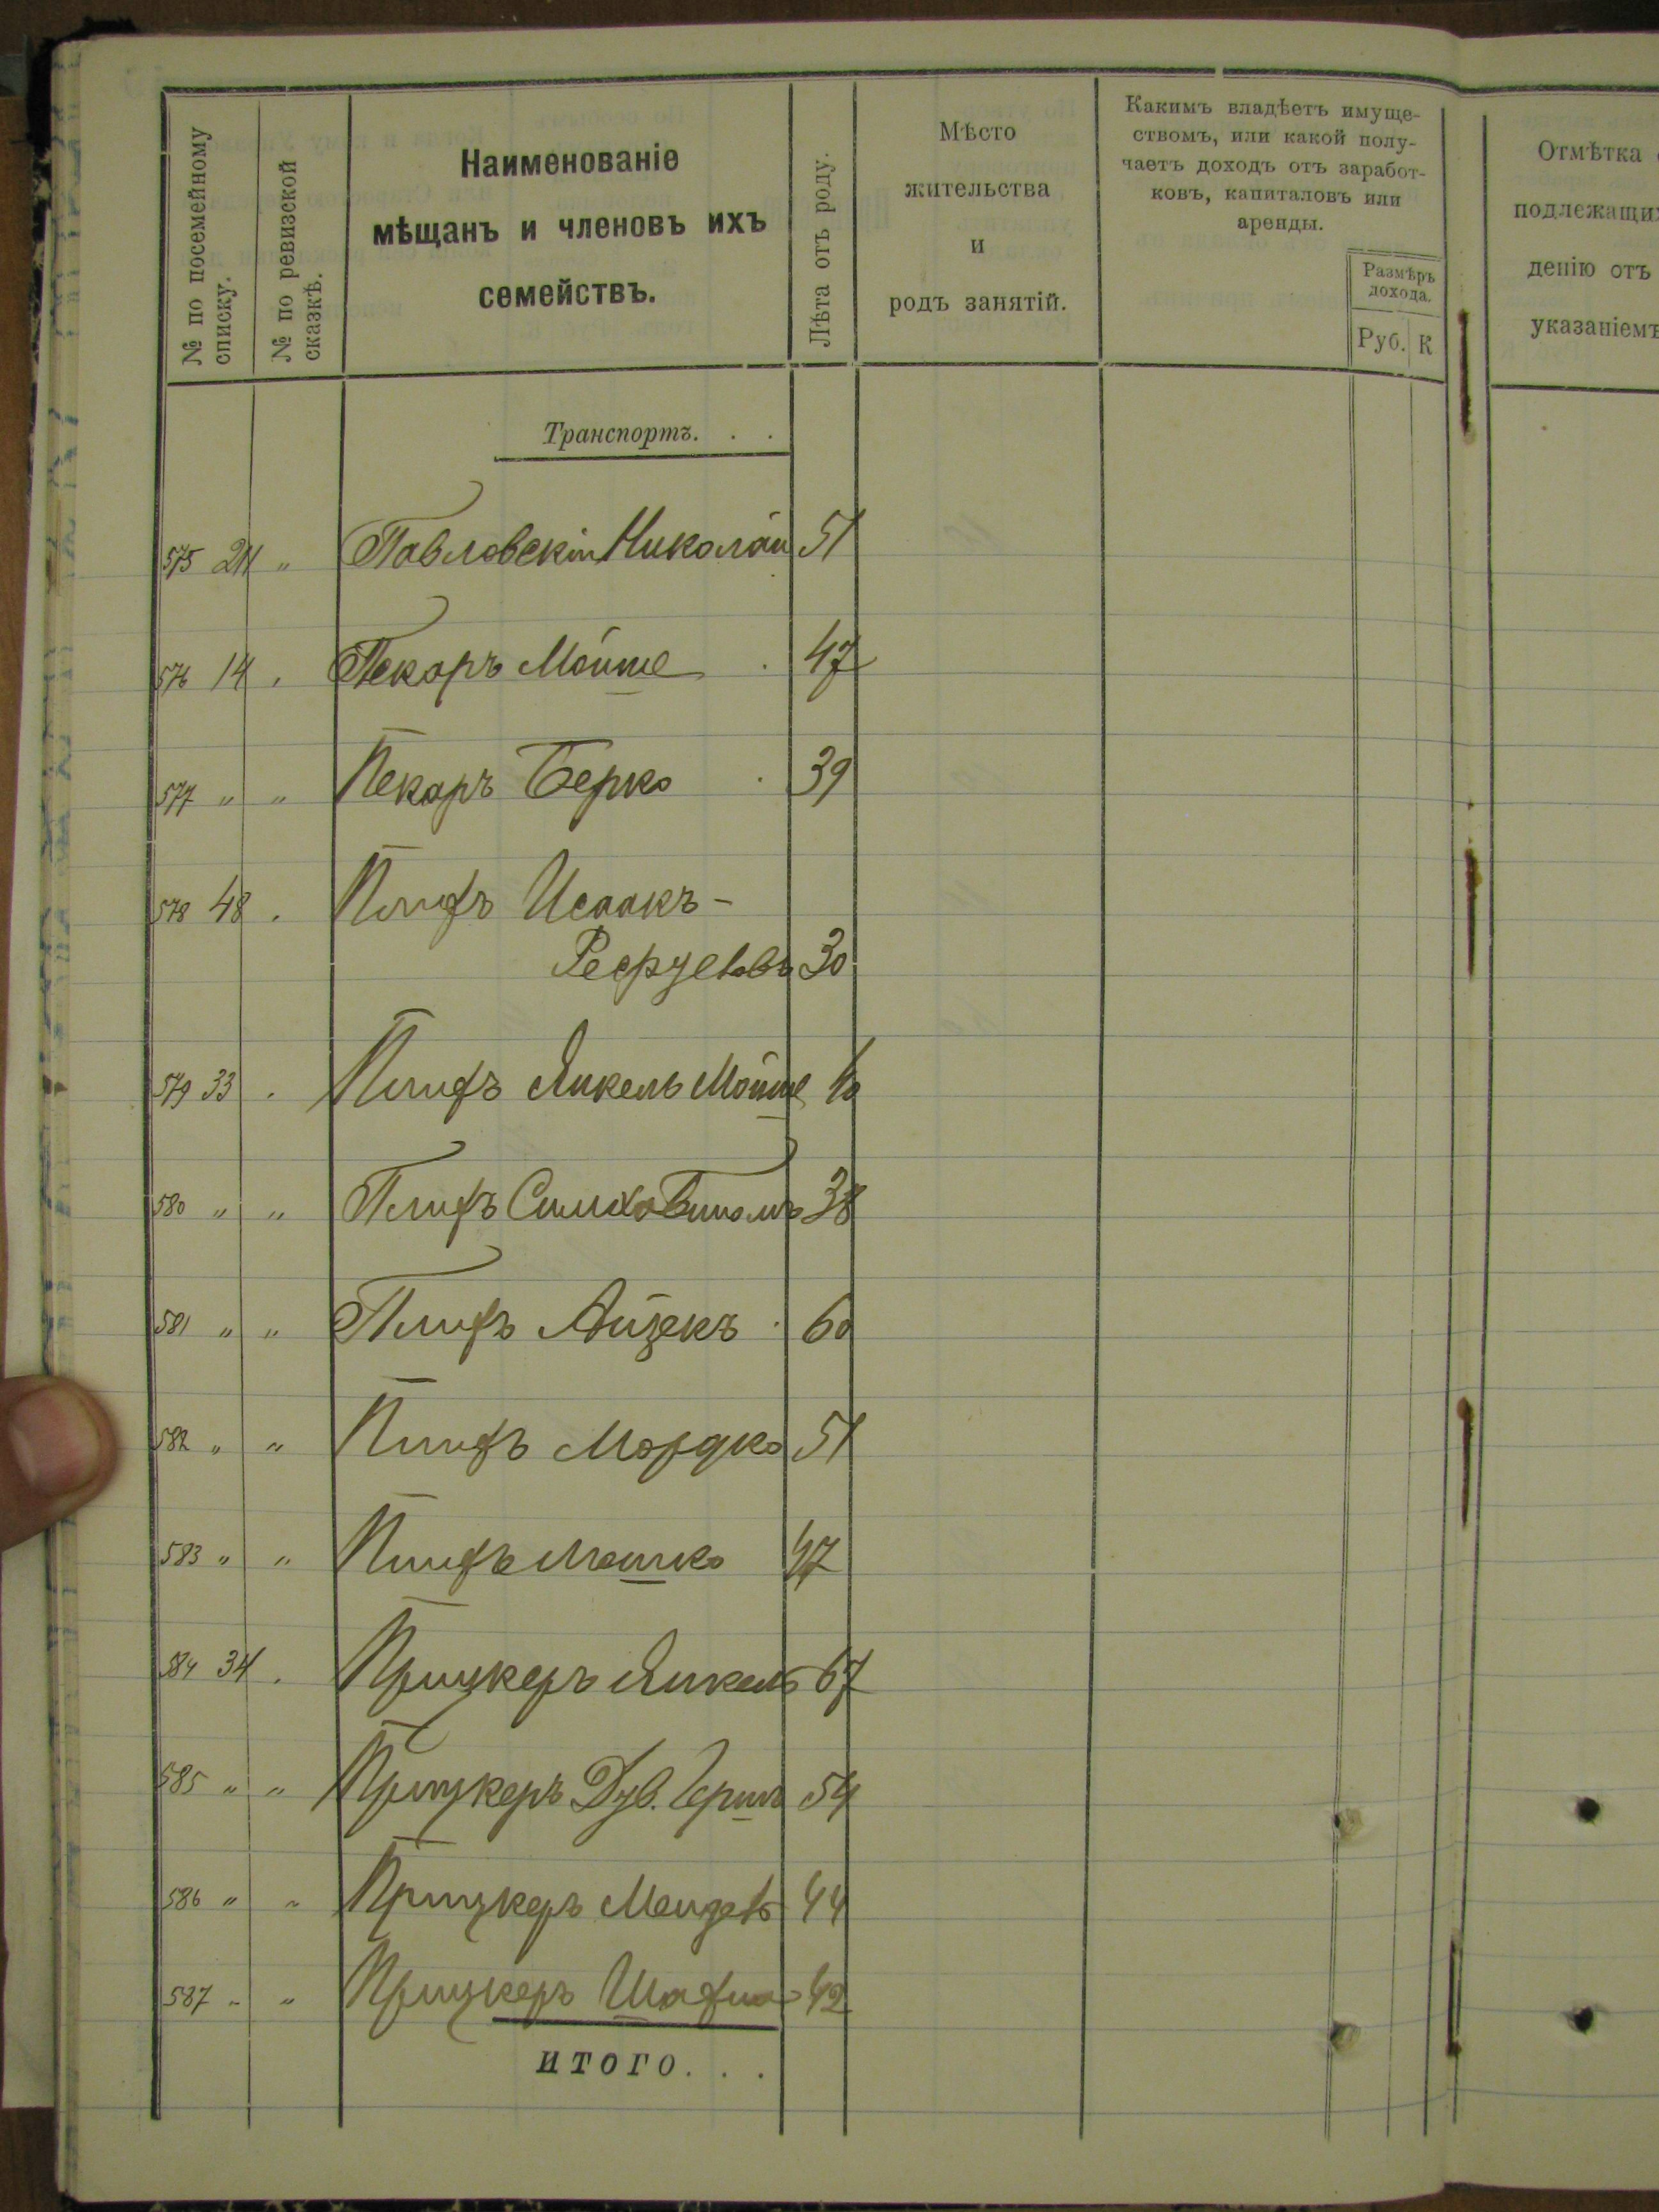 № по посемейному списку.
№ по ревизской сказкѣ.
Наименованіе
мѣщанъ и членовъ ихъ
семействъ.
Лѣта отъ роду.
Мѣсто
жительства
и
родъ занятій.
Какимъ владѣетъ имуще-
ствомъ, или какой полу-
чаетъ доходъ отъ заработ-
ковъ, капиталовъ или
аренды.
Размѣръ
дохода.
Руб. К
Отмѣтка
подлежащих
денію отъ
указаніемъ
Транспортъ. . .
575 211 " Павловскій Николай 51
576 14 . Пекаръ Мойше 47
577 " " Пекаръ Берко 39
578 48 . Плифъ Исаакъ-
30
579 33 . Плифъ Янкель Мойше 40
580 " " Плифъ Симха 38
581 " " Плифъ Айзекъ 60
582 " " Плифъ Мордко 51
583 " " Плифъ Мошко 47
584 34 . Прицкеръ Янкель 67
585 " " Прицкеръ Дув. Гершъ 54
586 " " Прицкеръ Мендель 44
587 " " Прицкеръ 42
ИТОГО. . .